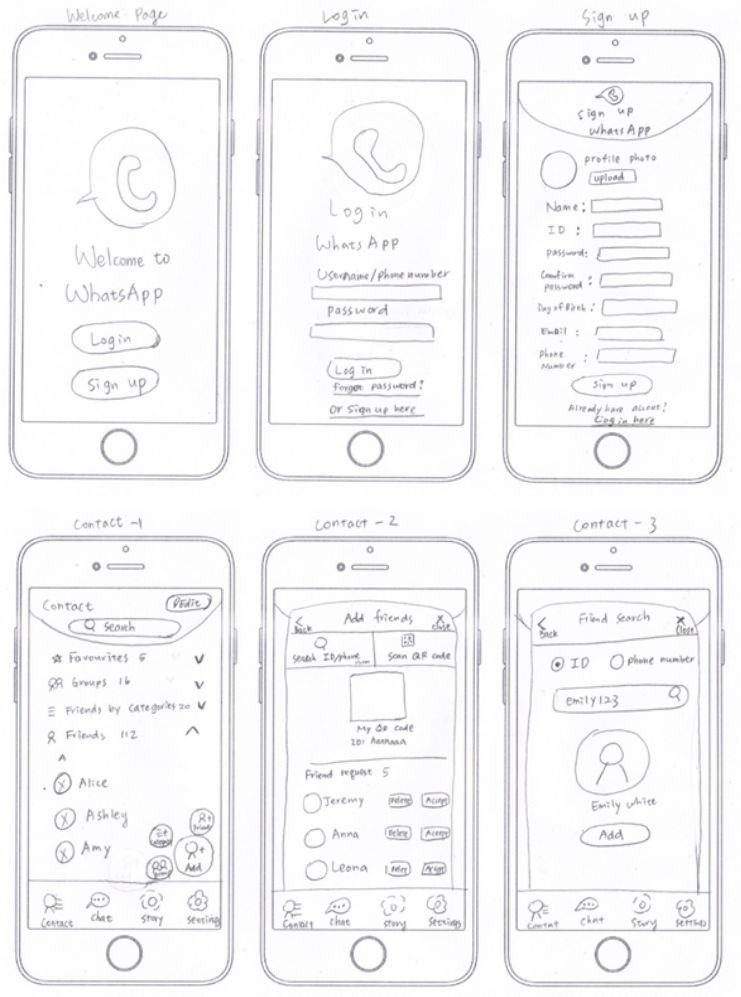 Welcome Page
Welcome to
WhatsApp
Login
Sign up
Login
Log in
WhatsApp
Username/phone number
password
Log in
forget password?
Or Sign up here
Sign up
Sign up
WhatsApp
profile photo
upload
Name:
ID :
password:
Confirm
password :
Day of Birth :
Email :
Phone
Number :
Sign up
Already have accout?
Log in here
Contact -1
Contact
Edit
Search
Favourites 5
Groups 16
Friends by categories 20
Friends 112
A
Alice
Ashley
Amy
Add
Contact
chat
Story
Settings
Contact - 2
Back
Add friends
close
Search ID/phone
Scan QR code
My QR code
ID:
Friend request 5
Jeremy
Delete
Accept
Anna
Delete
Accept
Leona
Contact
chat
Story
Settings
Contact - 3
Back
Friend search
Close
ID
phone number
emily123
Emily White
Add
Contat
chat
Story
Settings